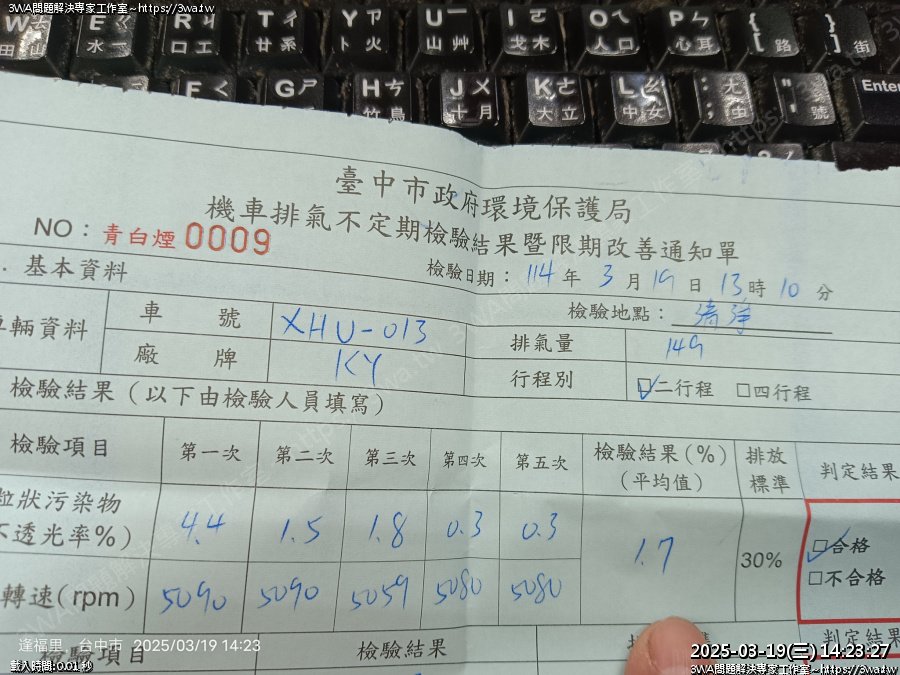 3WA問題解決專家工作室~https://3wa.tw
W
田 山
E
水
R
口 工
T
廿 系
Y
卜 火
U
山 艸
I
戈 木
O
人 口
P
心 耳
{
[ 路
}
] 街
F
G
H
竹 鳥
J
十 月
K
大 立
L
中 女
:
;
"
' 號
Enter
臺中市政府環境保護局
機車排氣不定期檢驗結果暨限期改善通知單
NO：青白煙 0009
檢驗日期： 114 年 3 月 19 日 13 時 10 分
基本資料
檢驗地點：清淨
車輛資料 車號 XHU-013 排氣量 149
廠牌 KY 行程別 ☑二行程 □四行程
檢驗結果（以下由檢驗人員填寫）
檢驗項目 第一次 第二次 第三次 第四次 第五次 檢驗結果(%)(平均值) 排放標準 判定結果
粒狀污染物
不透光率%) 4.4 1.5 1.8 0.3 0.3 1.7 30% ☑合格
□不合格
轉速(rpm) 5090 5090 5059 5080 5080
檢驗項目 檢驗結果 判定結果
逢福里，台中市 2025/03/19 14:23
載入時間: 0.01 秒
2025-03-19(三) 14:23:27
3WA問題解決專家工作室~https://3wa.tw